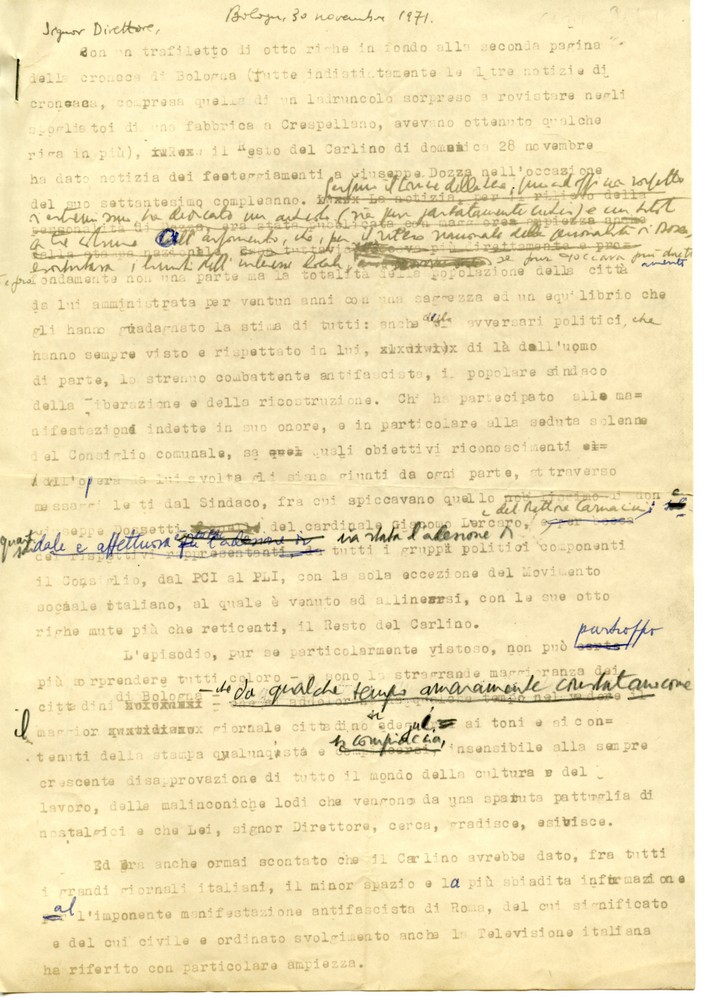 Bologna, 30 novembre 1971.
Signor Direttore,
Con un trafiletto di otto righe in fondo alla seconda pagina
della cronaca di Bologna (Tutte indistintamente le altre notizie di
cronaca, compresa quella di un ladruncolo sorpreso a rovistare negli
spogliatoi di una fabbrica a Crespellano, avevano ottenuto qualche
riga in più), il Resto del Carlino di domenica 28 novembre
ha dato notizia dei festeggiamenti a Giuseppe Dozza nell'occazione
del suo settantesimo compleanno. La notizia, per il rilievo della
Perfino il Corriere della Sera, pur
ha dedicato un articolo
a tre colonne all'argomento, che, per il rilievo nazionale della personalità di Dozza,
i limiti dell'interesse locale, se pur toccava più diretta
mente
e prof
ondamente non una parte ma la totalità della popolazione della città
da lui amministrata per ventun anni con una saggezza ed un equilibrio che
gli hanno guadagnato la stima di tutti: anche degli avversari politici, che
hanno sempre visto e rispettato in lui, di là dall'uomo
di parte, lo strenuo combattente antifascista, il popolare sindaco
della liberazione e della ricostruzione. Chi ha partecipato alle ma-
nifestazioni indette in suo onore, e in particolare alla seduta solenne
del Consiglio comunale, sa quali obiettivi riconoscimenti
all'opera da lui svolta gli siano giunti da ogni parte, attraverso
messaggi letti dal Sindaco, fra cui spiccavano quello non
c del Rettore Carnacini
Giuseppe Dossetti del cardinale Giacomo Lercaro,
quanto
dale e affettuosa era stata l'adesione
dei rispettivi rappresentanti di tutti i gruppi politici componenti
il Consiglio, dal PCI al PLI, con la sola eccezione del Movimento
sociale italiano, al quale è venuto ad allinearsi, con le sue otto
righe mute più che reticenti, il Resto del Carlino.
purtroppo
L'episodio, pur se particolarmente vistoso, non può certo
più sorprendere tutti coloro - e sono la stragrande maggioranza dei
cittadini di Bologna - che da qualche tempo amaramente constatano come
il maggior giornale cittadino si adegui ai toni e ai con-
tenuti della stampa qualunquista e si compiaccia, insensibile alla sempre
crescente disapprovazione di tutto il mondo della cultura e del
lavoro, delle malinconiche lodi che vengono da una sparuta pattuglia di
nostalgici e che Lei, signor Direttore, cerca, gradisce, esibisce.
Ed era anche ormai scontato che il Carlino avrebbe dato, fra tutti
i grandi giornali italiani, il minor spazio e la più sbiadita informazione
al l'imponente manifestazione antifascista di Roma, del cui significato
e del cui civile e ordinato svolgimento anche la Televisione italiana
ha riferito con particolare ampiezza.